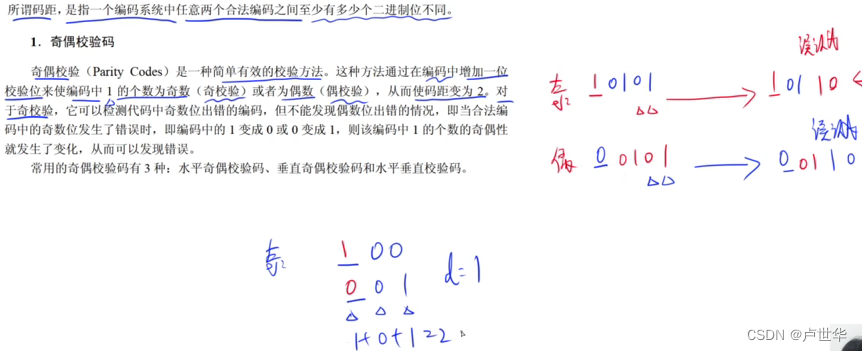 所谓码距，是指一个编码系统中任意两个合法编码之间至少有多少个二进制位不同。
1．奇偶校验码
奇偶校验（Parity Codes）是一种简单有效的校验方法。这种方法通过在编码中增加一位
校验位来使编码中 1 的个数为奇数（奇校验）或者为偶数（偶校验），从而使码距变为 2。对
于奇校验，它可以检测代码中奇数位出错的编码，但不能发现偶数位出错的情况，即当合法编
码中的奇数位发生了错误时，即编码中的 1 变成 0 或 0 变成 1，则该编码中 1 的个数的奇偶性
就发生了变化，从而可以发现错误。
常用的奇偶校验码有 3 种：水平奇偶校验码、垂直奇偶校验码和水平垂直校验码。
误认为
奇: 1 0101 → 1 01 10
误认为
偶: 0 0101 → 0 01 10
奇: 1 00
0 01 d=1
1+0+1=2
CSDN @卢世华